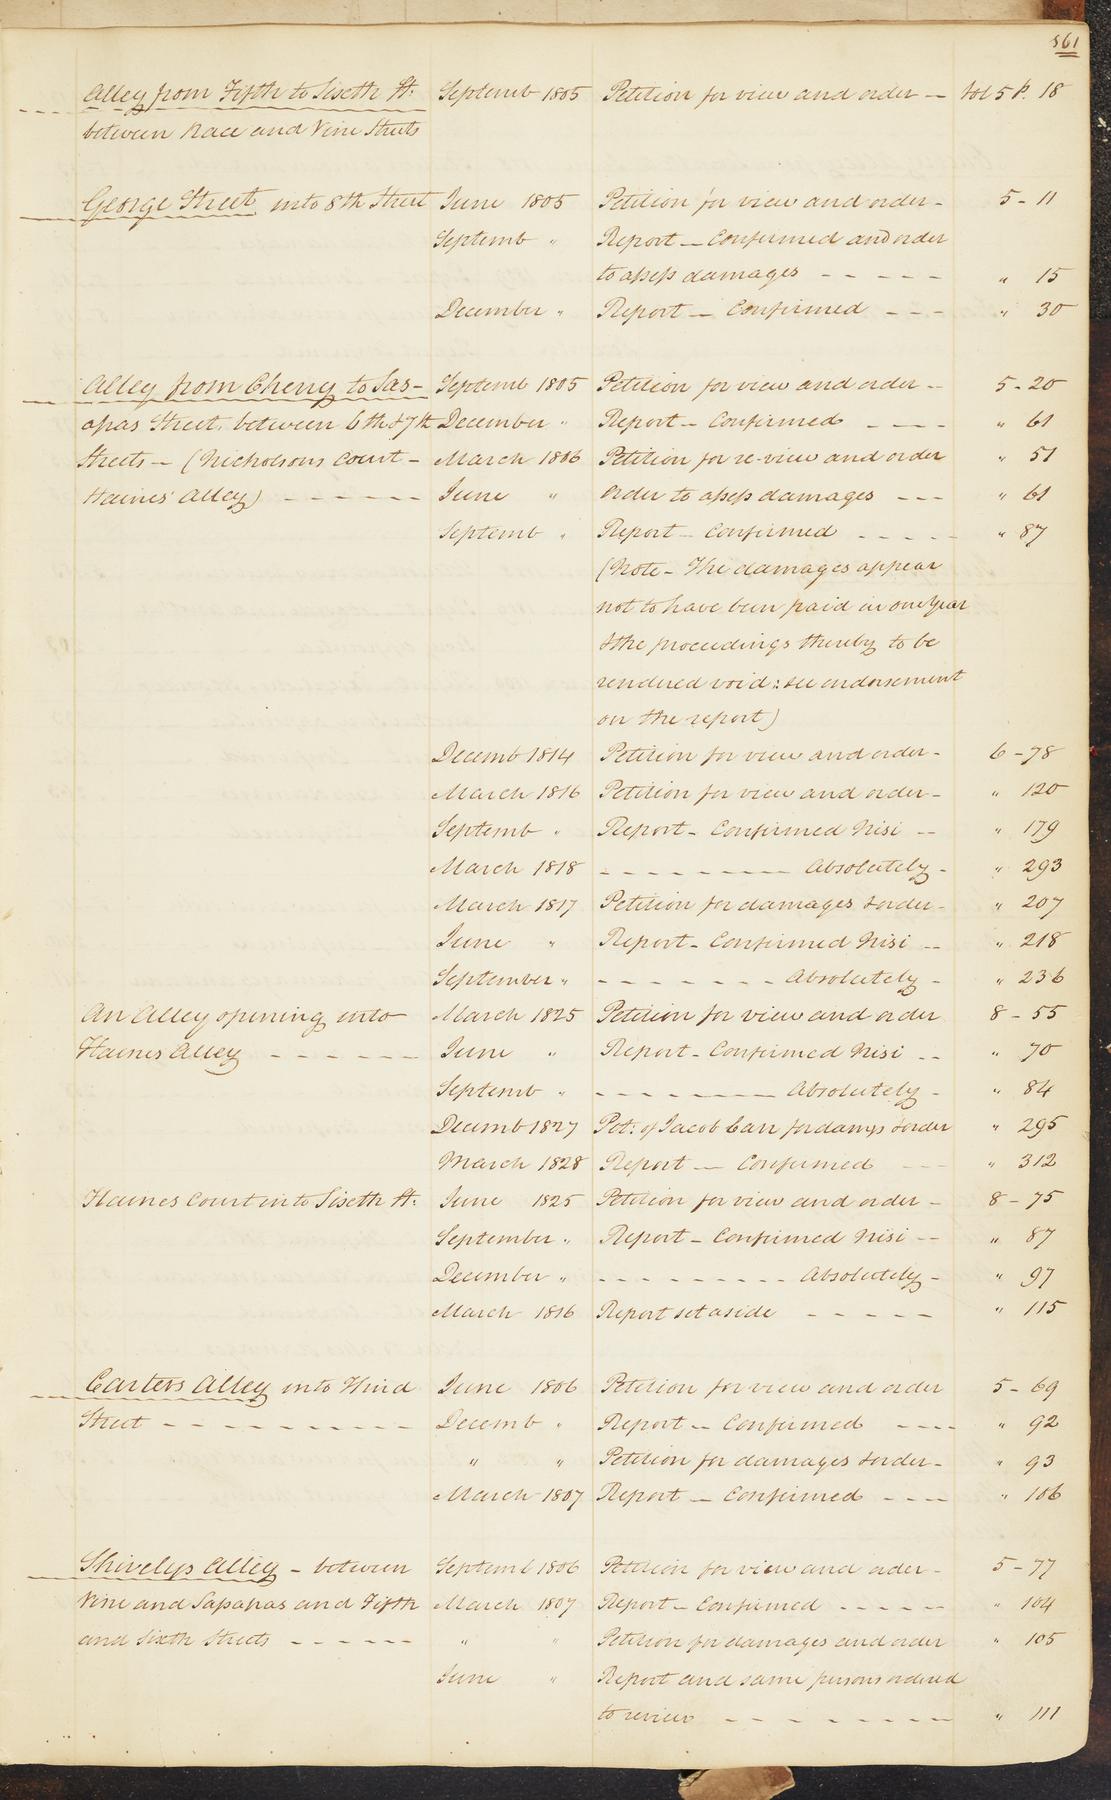 561
Alley from Fifth to Sixth St. Septemb 1805 Petition for view and order — Vol 5 P. 18
between Race and Vine Streets
George Street into 8th Street June 1805 Petition for view and order - 5 - 11
Septemb " Report — Confirmed and order
to assess damages - - - - - " 15
December " Report — Confirmed - - - " 30
Alley from Cherry to Sas- Septemb 1805 Petition for view and order -- 5 - 20
afras Street, between 6th & 7th December " Report — Confirmed - - - - " 61
Streets — (Nicholsons Court - March 1806 Petition for re-view and order " 51
Haines' Alley) - - - - - - June " Order to assess damages - - - " 61
Septemb " Report — Confirmed - - - - - " 87
(Note - The damages appear
not to have been paid in one year
& the proceedings thereby to be
rendered void: see endorsement
on the report)
Decemb 1814 Petition for view and order - 6 - 78
March 1816 Petition for view and order - " 120
Septemb " Report - Confirmed Nisi -- " 179
March 1818 - - - - - - - - - Absolutely - " 293
March 1817 Petition for damages & order - " 207
June " Report - Confirmed Nisi -- " 218
September " - - - - - - - - Absolutely - " 236
An Alley opening into March 1825 Petition for view and order 8 - 55
Haines Alley - - - - - - June " Report - Confirmed Nisi -- " 70
Septemb " - - - - - - - - Absolutely - " 84
Decemb 1827 Pet: of Jacob Carr for damgs & order " 295
March 1828 Report — Confirmed - - - " 312
Haines Court into Sixth St: June 1825 Petition for view and order - 8 - 75
September " Report - Confirmed Nisi -- " 87
December " - - - - - - - - - Absolutely - " 97
March 1816 Report set aside - - - - - " 115
Carters Alley into Third June 1806 Petition for view and order 5 - 69
Street - - - - - - - - - Decemb " Report — Confirmed - - - - " 92
" " Petition for damages & order - " 93
March 1807 Report — Confirmed - - - - " 106
Shivelys Alley - between Septemb 1806 Petition for view and order - 5 - 77
Vine and Sassafras and Fifth March 1807 Report - Confirmed - - - - - " 104
and Sixth Streets - - - - - - " " Petition for damages and order " 105
June " Report and same persons ordered
to review - - - - - - - - " 111